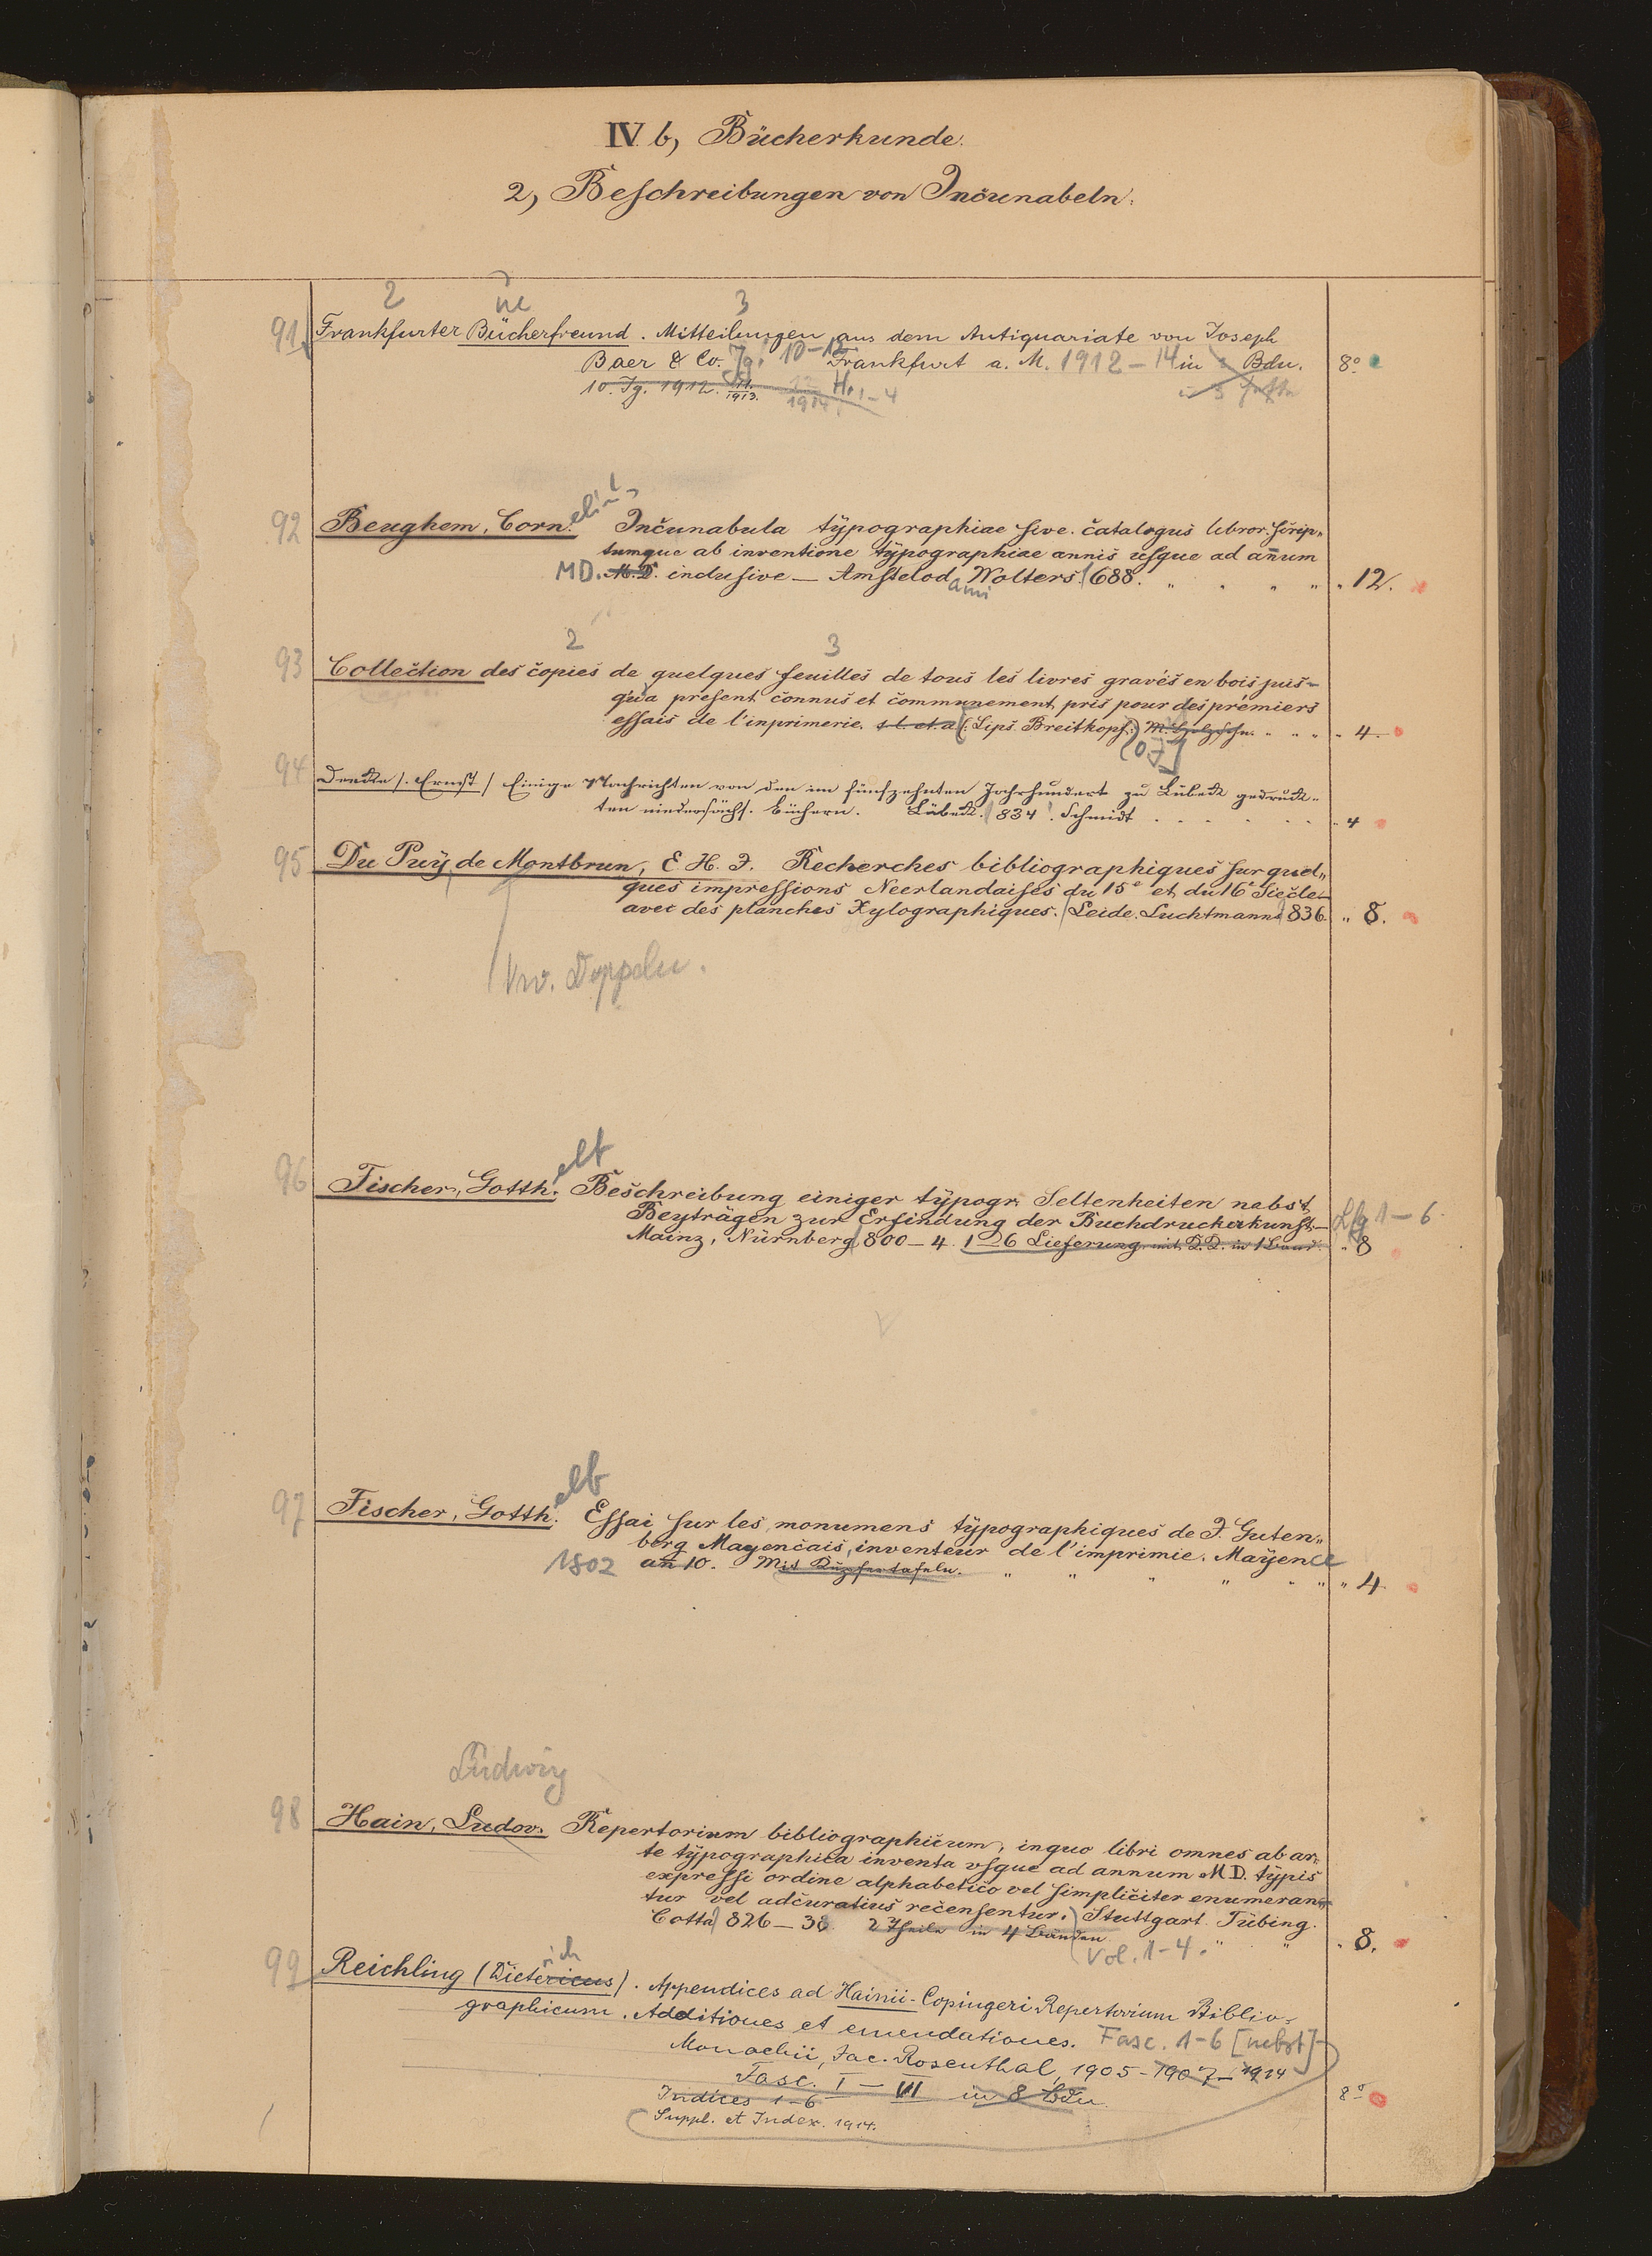 IV. b, Bücherkunde.
2, Beschreibungen von Incunabeln.
2 ne 3
91 Frankfurter Bücherfreund. Mitteilungen aus dem Antiquariate von Joseph
Baer & Co. Jg. 10-12 Frankfurt a. M. 1912-14 in Bdn. 8°
10. Jg. 1912. 11. 1913. 12 1914. H. 1-4
92 Beughem, Corn. eli Incunabula typographiae sive catalogus libror. scrip„
tumque ab inventione typographiae annis usque ad anum
MD. M.D. inclusive — Amstelod ami Wolters. 1688. „ 12.
2 3
93 Collection des copies de quelques feuilles de tous les livres gravés en bois jus-
qu'a present connus et communement pris pour des premiers
essais de l'inprimerie. s. l. et. a. (Lips. Breitkopf.) M. Holzschn. „ 4.
[o. J.]
94 Deecke /. Ernst / Einige Nachrichten von den im fünfzehnten Jahrhundert zu Lübeck gedruck-
ten niedersächs. Büchern. Lübeck. 834. Schmidt . . . „ 4
95 Du Puÿ de Montbrun, E. H. J. Recherches bibliographiques sur quel„
ques impressions Neerlandaises du 15e et du 16e Siècle
avec des planches Xylographiques. Leide. Luchtmanns 836. „ 8.
Doppeln.
elf
96 Fischer, Gotth. Beschreibung einiger typogr. Seltenheiten nebst
Beyträgen zur Erfindung der Buchdruckerkunst — Lfg 1-6
Mainz, Nürnberg 800-4. 1-6 Lieferung mit in 1 Band. „ 8
elf
97 Fischer, Gotth. Essai sur les monumens typographiques de J. Guten„
berg Mayençais, inventeur de l'imprimie. Mayence
1802 an 10. Mit Kupfertafeln. „ 4
Ludwig
98 Hain, Ludov. Repertorium bibliographicum, in quo libri omnes ab ar„
te typographica inventa usque ad annum M D. typis
expressi ordine alphabetico vel simpliciter enumeran„
tur vel adcuratius recensentur. Stuttgart. Tübing.
Cotta 826-38 2 Theile in 4 Bänden „ 8.
Vol. 1-4.
ich
99 Reichling (Dietericus). Appendices ad Hainii-Copingeri Repertorium Biblio-
graphicum. Additiones et emendationes. Fasc. 1-6 [nebst]
Monachii, Jac. Rosenthal, 1905-1907-1914
Fasc. I-VI in 8 Bdn. 8°
Indices 1-6
Suppl. et Index. 1914.